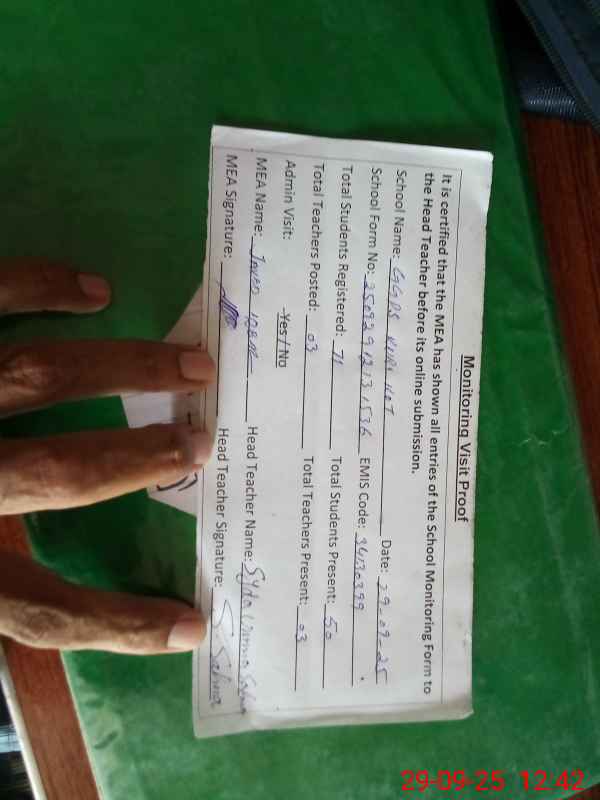 Monitoring Visit Proof
It is certified that the MEA has shown all entries of the School Monitoring Form to
the Head Teacher before its online submission.
School Name: GGPS Date: 29-09-25
School Form No: 25092912131536 EMIS Code: 34130399
Total Students Registered: 71 Total Students Present: 50
Total Teachers Posted: 03 Total Teachers Present: 03
Admin Visit: -Yes / No
MEA Name: Head Teacher Name: Syda
MEA Signature: Head Teacher Signature:
29-09-25 12:42